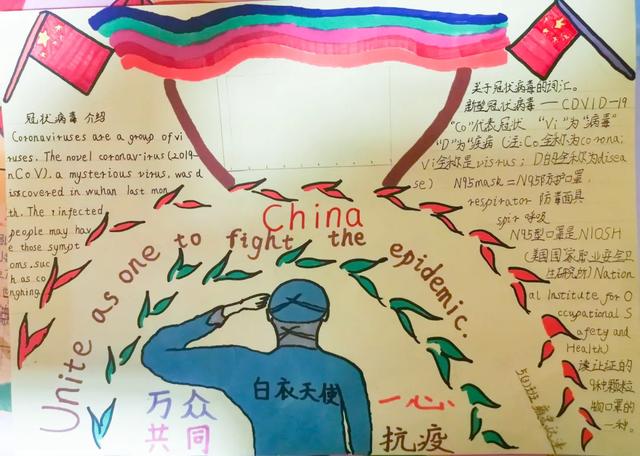 冠状病毒 介绍
Coronaviruses are a group of vi
ruses. The novel coronavirus (2019-
nCoV). a mysterious virus, was d
iscovered in wuhan last mon
th. The infected
people may hav
e those sympt
oms. suc
h as co
nghing.
关于冠状病毒的词汇。
新型冠状病毒 — COVID-19
"Co"代表冠状 "Vi"为"病毒"
"D"为"疾病 (注: Co全称为corona;
Vi全称是visrus; D的全称为disea
se) N95mask = N95防护口罩,
respirator 防毒面具
spir 呼吸
N95型口罩是NIOSH
(美国国家职业安全卫
生研究所) Nation
al Institute for O
ccupational S
afety and
Health)
认证的
9种颗粒
物口罩的
一种。
China
Unite as one to fight the epidemic.
白衣天使
万众 一心
共同 抗疫